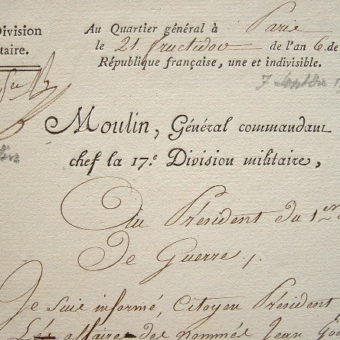 Division
litaire.
Au Quartier général à Paris
le 21 fructidor de l'an 6 de
République française, une et indivisible.
7
Moulin, Général commandant
chef la 17e Division militaire,
Au Président du 1er
De Guerre,
Je suis informé, Citoyen Président
affaire des nommés Jean